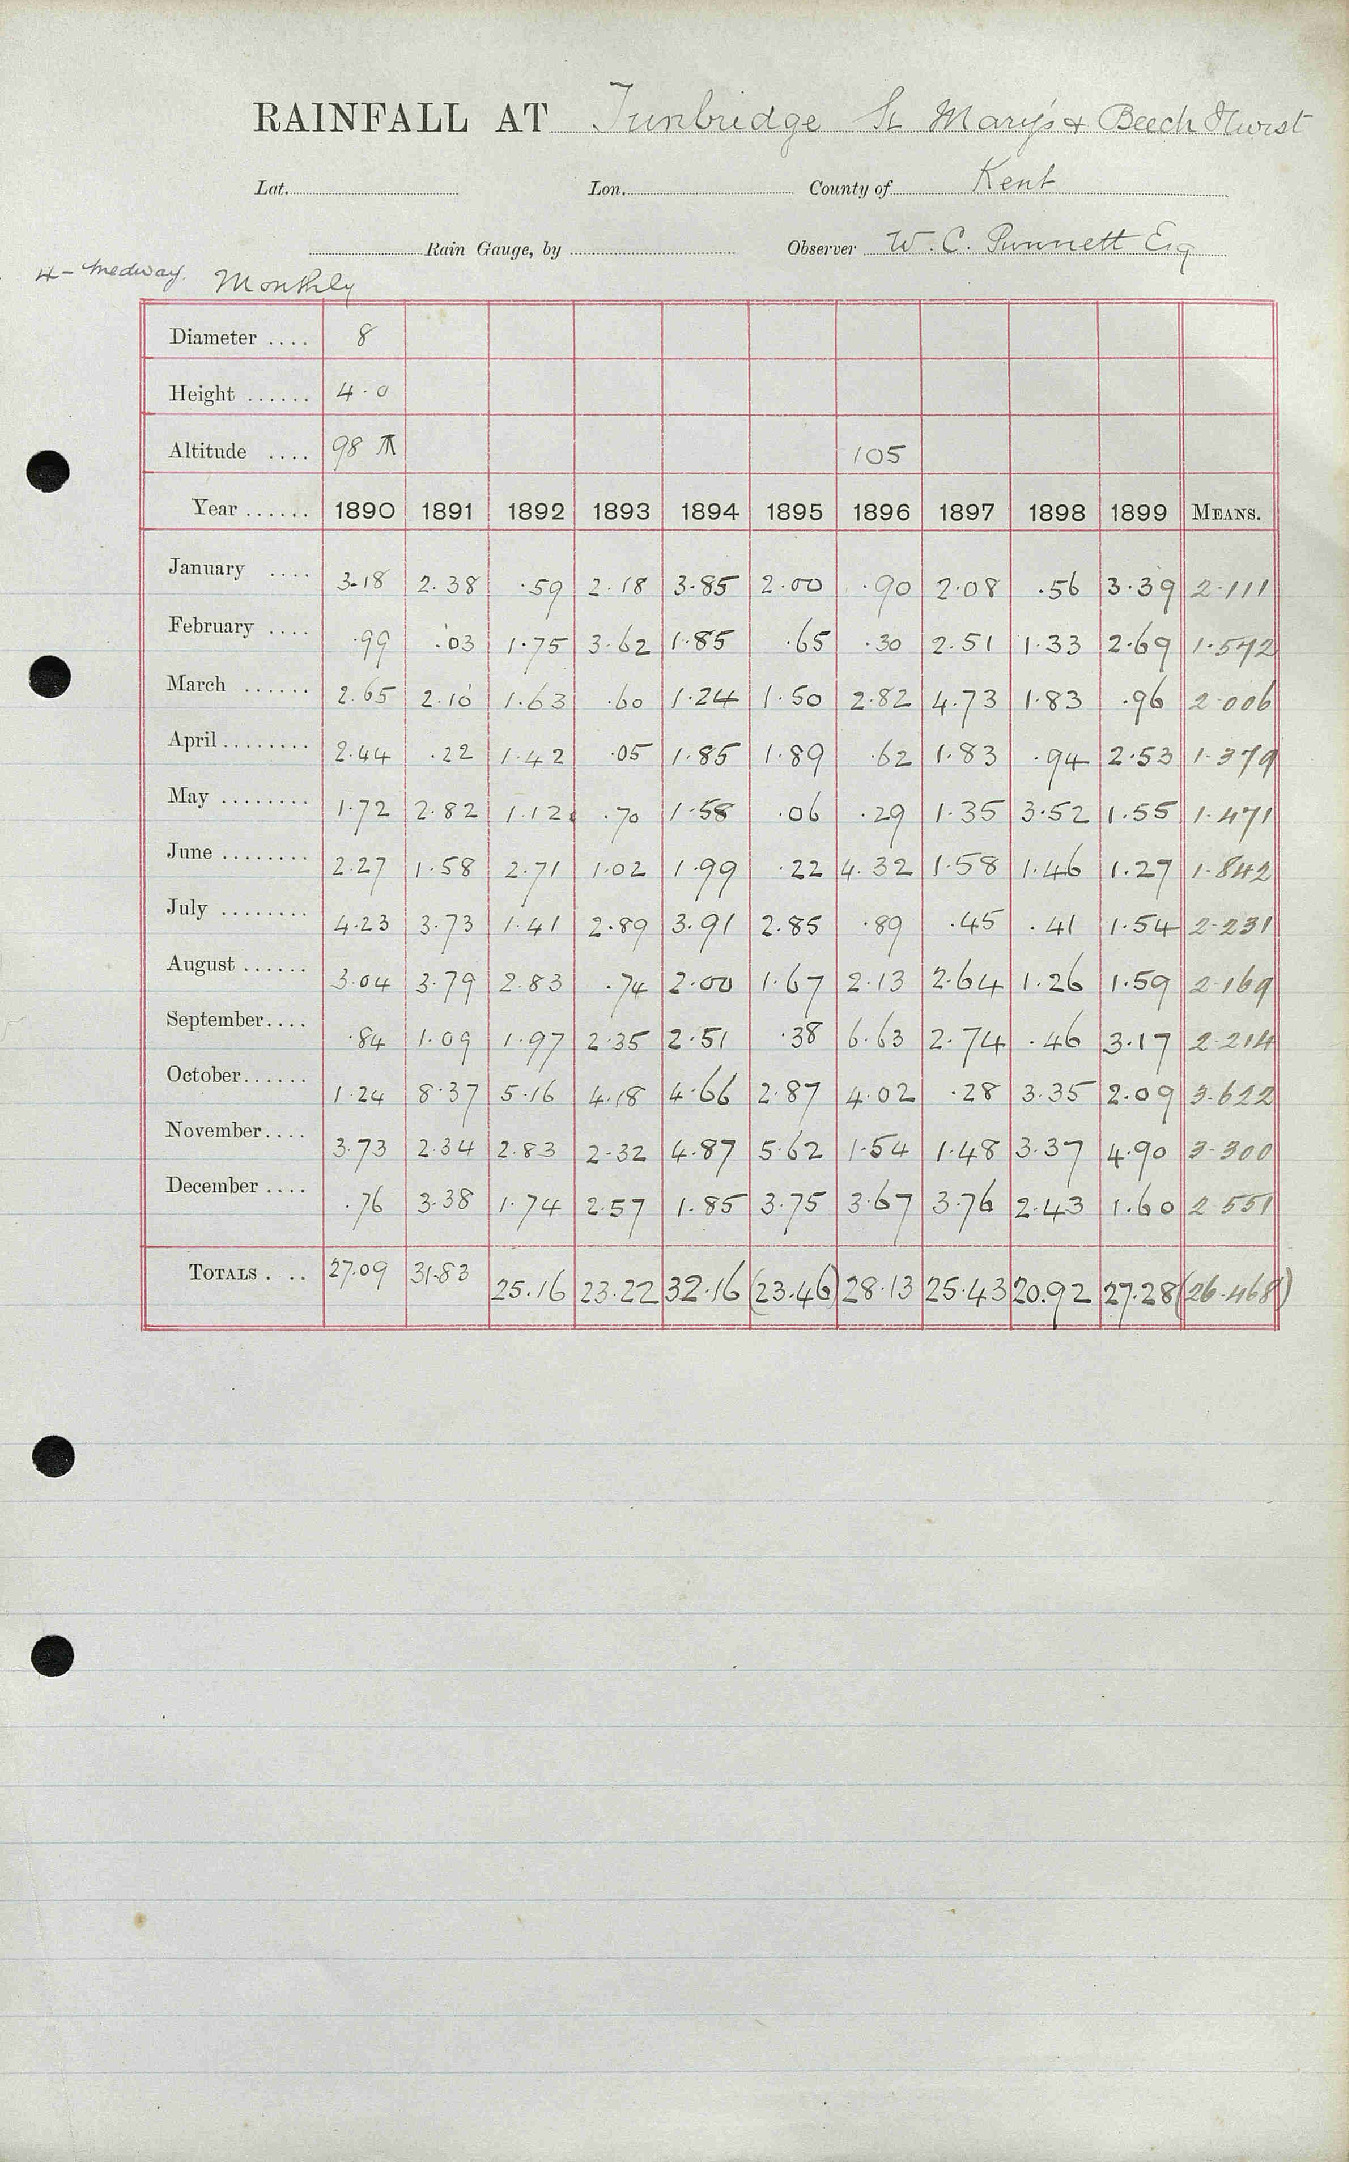 RAINFALL AT Tunbridge St Mary's & Beech Hurst
Lat. Lon. County of Kent
Rain Gauge, by Observer W. C. Punnett Esq
4 - Medway. Monthly
Diameter .... 8
Height ...... 4.0
Altitude .... 98 105
Year ...... 1890 1891 1892 1893 1894 1895 1896 1897 1898 1899 MEANS.
January .... 3.18 2.38 .59 2.18 3.85 2.00 .90 2.08 .56 3.39 2.111
February .... .99 .03 1.75 3.62 1.85 .65 .30 2.51 1.33 2.69 1.542
March ...... 2.65 2.10 1.63 .60 1.24 1.50 2.82 4.73 1.83 .96 2.006
April ........ 2.44 .22 1.42 .05 1.85 1.89 .62 1.83 .94 2.53 1.379
May ........ 1.72 2.82 1.12 .70 1.58 .06 .29 1.35 3.52 1.55 1.471
June ........ 2.27 1.58 2.71 1.02 1.99 .22 4.32 1.58 1.46 1.27 1.842
July ........ 4.23 3.73 1.41 2.89 3.91 2.85 .89 .45 .41 1.54 2.231
August ...... 3.04 3.79 2.83 .74 2.00 1.67 2.13 2.64 1.26 1.59 2.169
September .... .84 1.09 1.97 2.35 2.51 .38 6.63 2.74 .46 3.17 2.214
October ...... 1.24 8.37 5.16 4.18 4.66 2.87 4.02 .28 3.35 2.09 3.622
November .... 3.73 2.34 2.83 2.32 4.87 5.62 1.54 1.48 3.37 4.90 3.300
December .... .76 3.38 1.74 2.57 1.85 3.75 3.67 3.76 2.43 1.60 2.551
TOTALS . .. 27.09 31.83 25.16 23.22 32.16 (23.46) 28.13 25.43 20.92 27.28 (26.468)